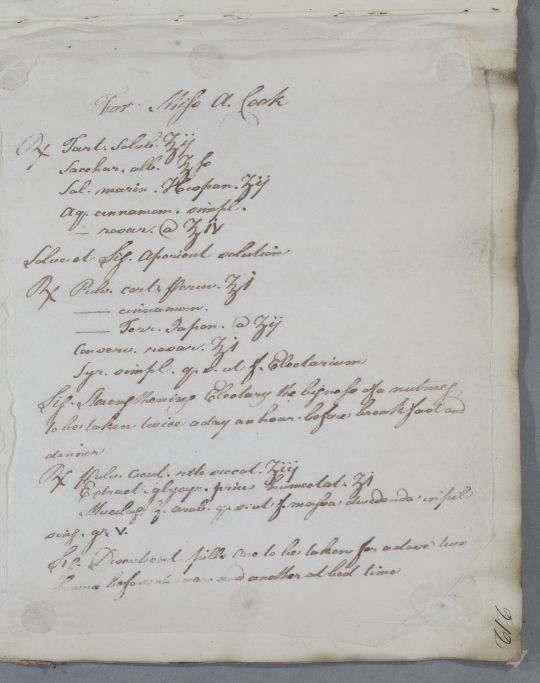 For Miss A. Cook
Rx Tart. Solub. ʒij
Sacchar. alb. ʒſs
Sal. marin. Hispan. ʒij
Aq. cinnamom. simpl.
— rosar. @ ʒiv
Solve et Sig. Aperient solution
Rx Pulv. cort. Peruv. ʒj
— cinnamom.
— Terr. Japon. @ ʒij
Conserv. rosar. ʒj
Syr. simpl. q. s. ut f. Electarium
Sig. Strengthening Electary the bigness of a nutmeg
to be taken twice a day an hour before breakfast and
dinner
Rx Pulv. rite siccat. ʒiij
Extract. glycyr. prius humectat. ʒj
Mucilag. g. arab. q. s. ut f. massa dividenda in pil
sing. gr. v.
Sig. pills one to be taken for a dose two
hours before dinner and another at bed time
212